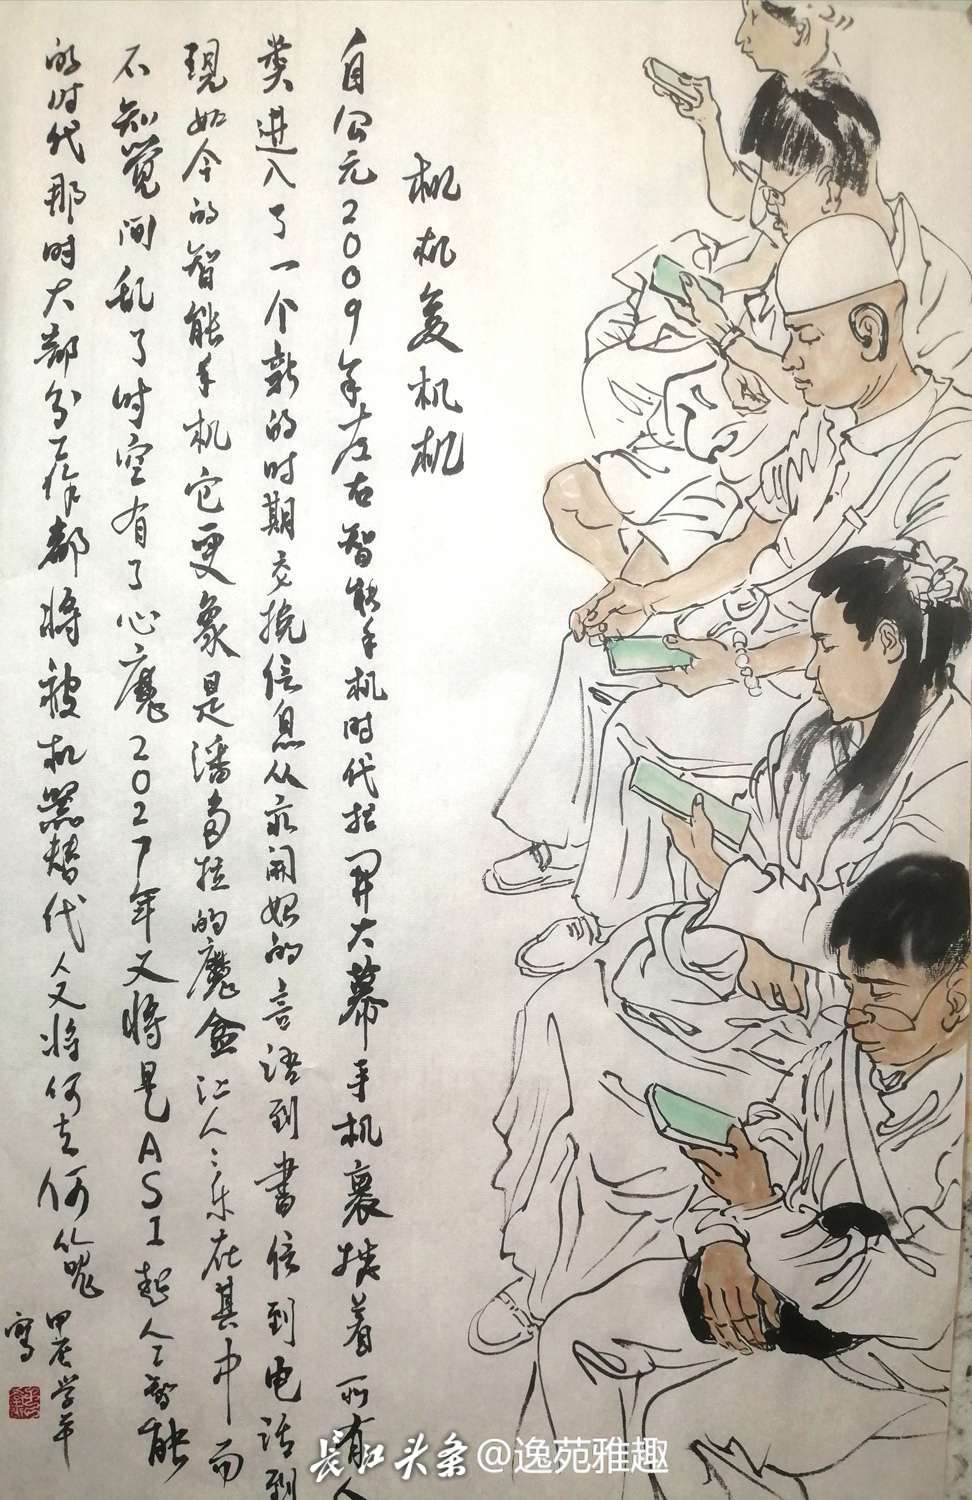 机机复机机
自公元2009年左右智能手机时代拉开大幕手机裹挟着所有人
类进入了一个新的时期交换信息从最开始的言语到书信到电话到
现如今的智能手机它更象是潘多拉的魔盒让人:乐在其中而
不知觉间乱了时空有了心魔2027年又将是ASI超人工智能
的时代那时大部分工作都将被机器替代人又将何去何从呢
甲辰学军
写
长江头条@逸苑雅趣